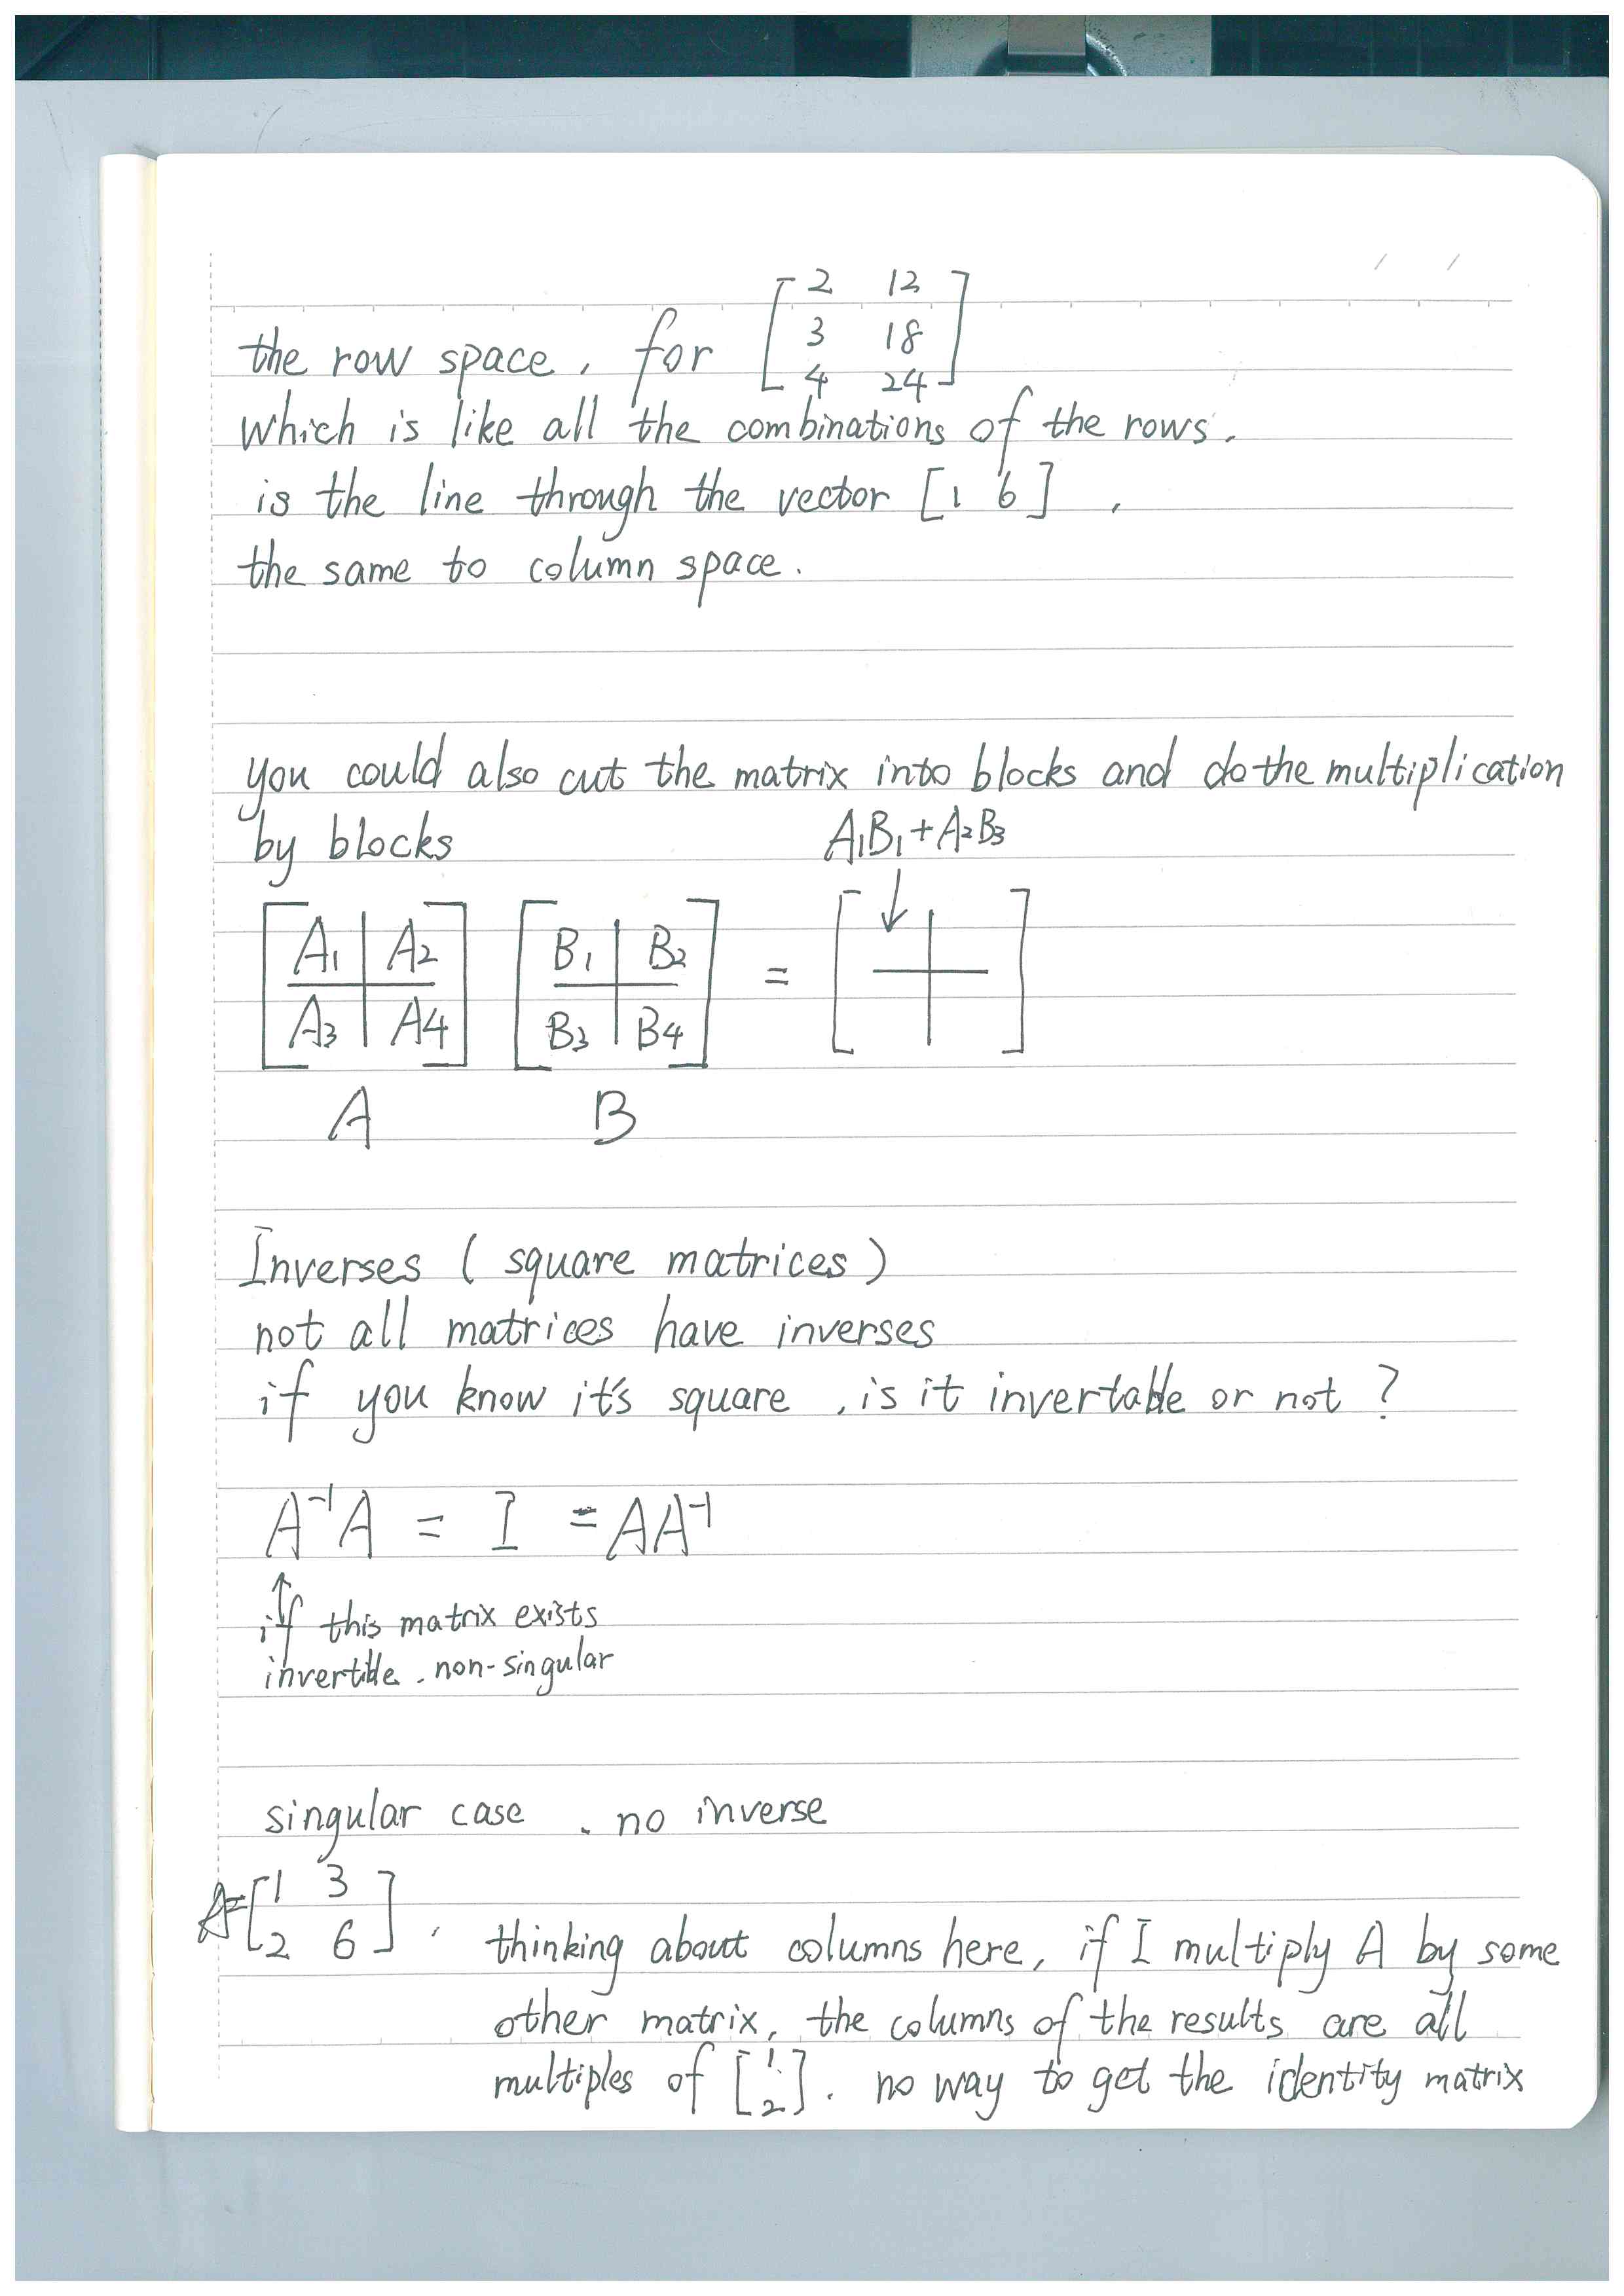 the row space, for [2 12
3 18
4 24]
which is like all the combinations of the rows.
is the line through the vector [1 6],
the same to column space.
you could also cut the matrix into blocks and do the multiplication
by blocks
A₁B₁+A₂B₃
[A₁ A₂ [B₁ B₂ = [ ]
A₃ A₄] B₃ B₄]
A B
Inverses (square matrices)
not all matrices have inverses
if you know it's square, is it invertable or not?
A⁻¹A = I = AA⁻¹
↑
if this matrix exists
invertible. non-singular
singular case. no inverse
A=[1 3
2 6]. thinking about columns here, if I multiply A by some
other matrix, the columns of the results are all
multiples of [1 2]. no way to get the identity matrix